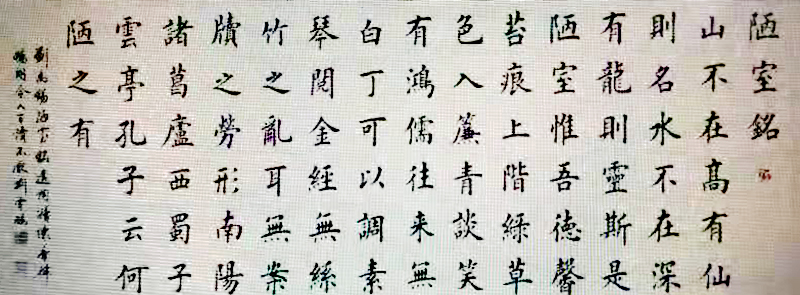 陋室銘
山不在高有仙
則名水不在深
有龍則靈斯是
陋室惟吾德馨
苔痕上階綠草
色入簾青談笑
有鴻儒往来無
白丁可以調素
琴閱金經無絲
竹之亂耳無案
牘之勞形南陽
諸葛廬西蜀子
雲亭孔子云何
陋之有
劉禹錫陋室銘
令人百讀不厭